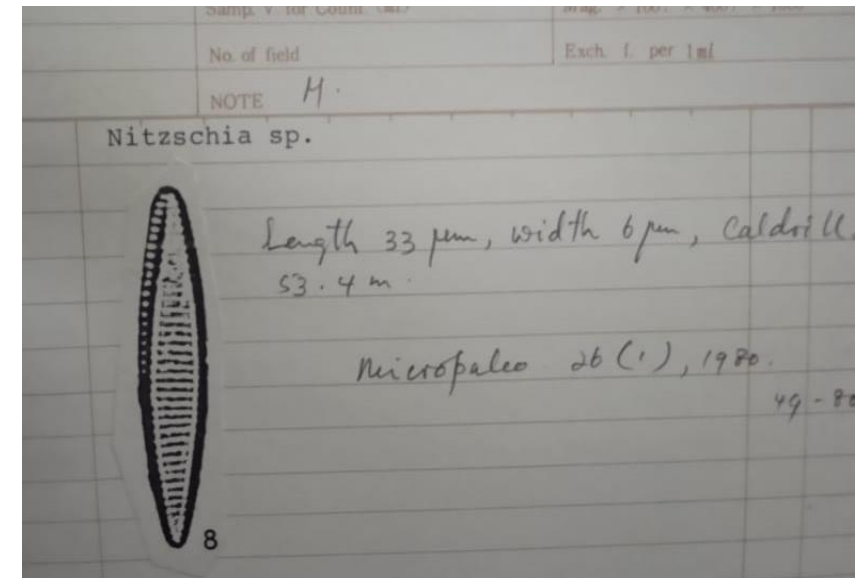 Samp. V. for Count (ml)
No. of field
Exch. f. per 1ml
NOTE M.
Nitzschia sp.
Length 33 µm, width 6 µm, Caldrill,
53.4 m.
Micropaleo 26 (1), 1980.
49-80
8